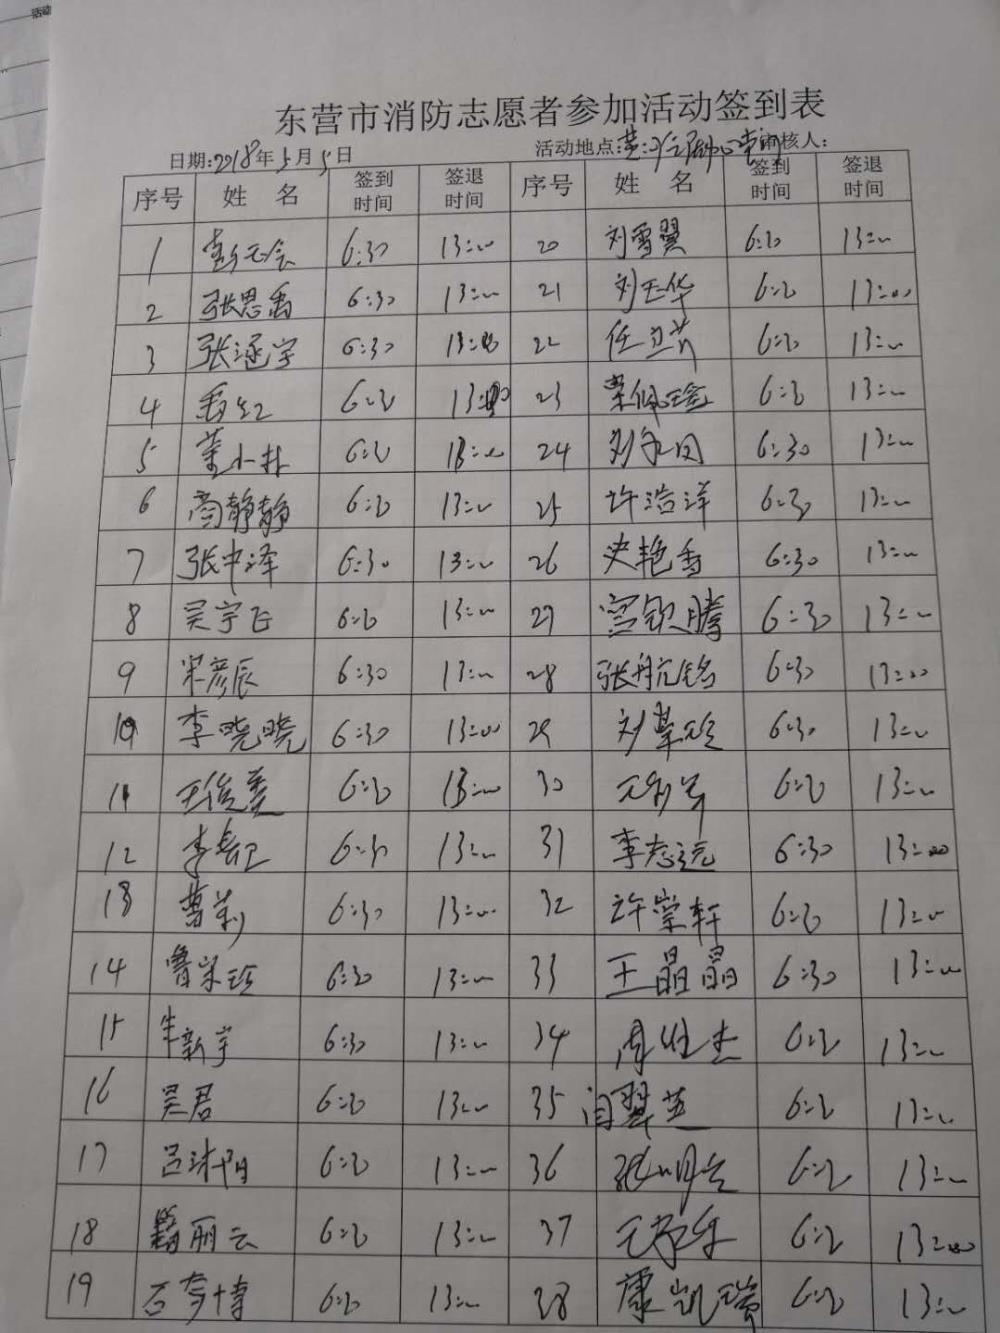 活动
东营市消防志愿者参加活动签到表
日期:2018年5月5日 活动地点: 审核人:
序号 姓 名 签到时间 签退时间 序号 姓 名 签到时间 签退时间
1 6:30 13:00 20 刘雪翼 6:30 13:00
2 张思禹 6:30 13:00 21 刘玉华 6:30 13:00
3 张涵宇 6:30 13:00 22 任卫芳 6:30 13:00
4 6:30 13:00 23 荣佩瑶 6:30 13:00
5 董小朴 6:30 13:00 24 刘永田 6:30 13:00
6 高静静 6:30 13:00 25 许浩洋 6:30 13:00
7 张中泽 6:30 13:00 26 史艳香 6:30 13:00
8 吴宇飞 6:30 13:00 27 宫钦腾 6:30 13:00
9 宋彦辰 6:30 13:00 28 张航铭 6:30 13:00
10 李晓晓 6:30 13:00 29 6:30 13:00
11 王俊美 6:30 13:00 30 6:30 13:00
12 6:30 13:00 31 李志远 6:30 13:00
13 曹莉 6:30 13:00 32 许崇轩 6:30 13:00
14 鲁荣珍 6:30 13:00 33 王晶晶 6:30 13:00
15 牛新宇 6:30 13:00 34 周胜杰 6:30 13:00
16 吴君 6:30 13:00 35 闫翠芝 6:30 13:00
17 吕沐阳 6:30 13:00 36 6:30 13:00
18 丽云 6:30 13:00 37 6:30 13:00
19 石梦博 6:30 13:00 38 康凯瑞 6:30 13:00